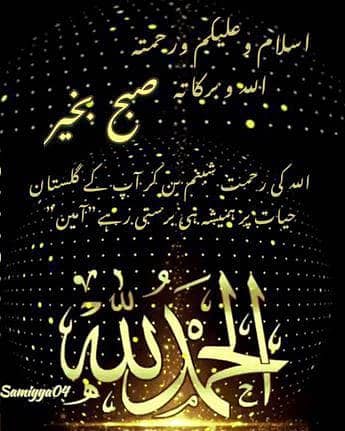 اسلام و علیکم ورحمتہ
اللہ و برکاتہ صبح بخیر
اللہ کی رحمت شبنم بن کر آپ کے گلستان
حیات پر ہمیشہ ہی برستی رہے "آمین"
الحمد للہ
Samiyya04